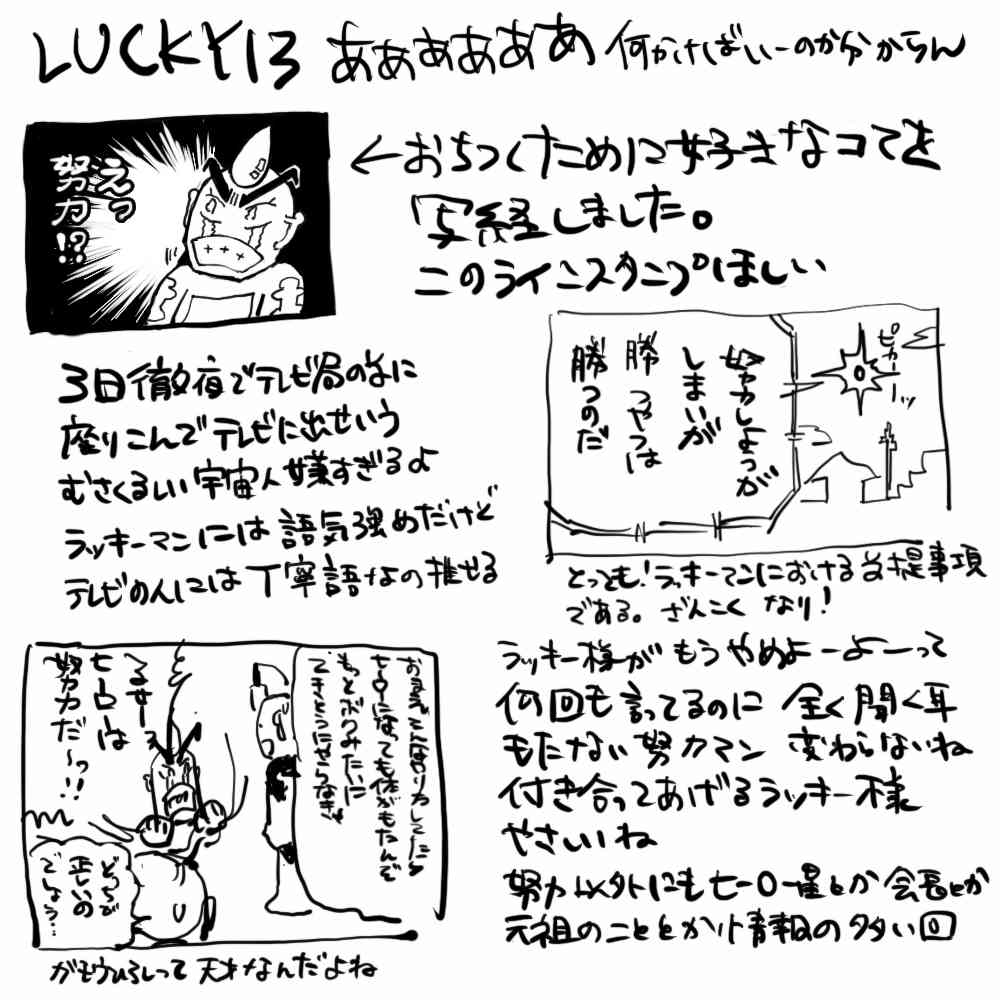 LUCKY13 ああああああ 何かけばいーのか分からん
えっ
努力!?
←おちつくために好きなコマを
写経しました。
このラインスタンプほしい
3日徹夜でテレビ局の前に
座りこんでテレビに出せいう
むさくるしい宇宙人嫌すぎるよ
ラッキーマンには語気強めだけど
テレビの人には丁寧語なの推せる
努力しようが
しまいが
勝つやつは
勝つのだ
ピカーッ
とっても!ラッキーマンにおける前提事項
である。ざんこくなり!
ラッキー様がもうやめよーよーって
何回も言ってるのに 全く聞く耳
もたない努力マン 変わらないね
付き合ってあげるラッキー様
やさしいね
努力以外にもヒーロー星とか会長とか
元祖のこととか情報の多い回
ヒーローになっても体がもたんぞ
もっとボクみたいに
てきとうにやらなきゃ
うるせー
ヒーローは
努力だ〜っ!!
どっちが
正しいの
でしょう…
がもうひろしって天才なんだよね